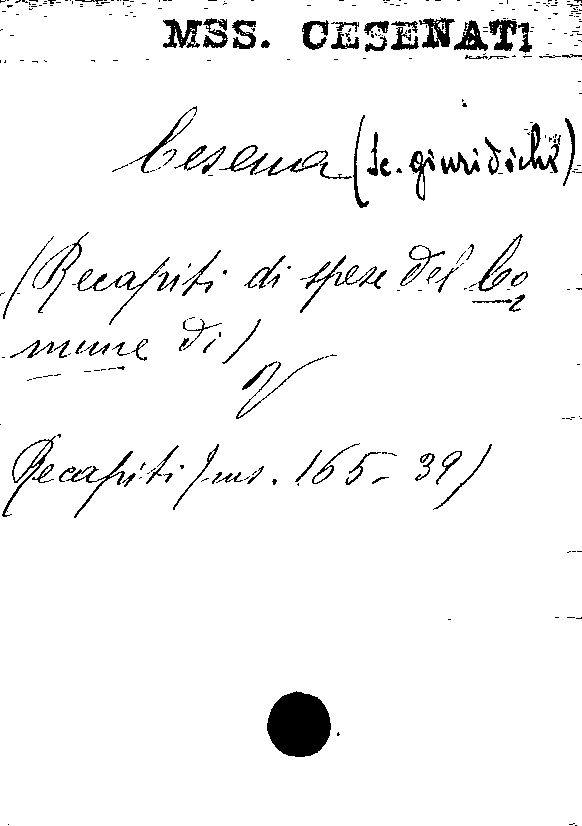 MSS. CESENATI
Cesena (Sc. giuridichi)
(Recapiti di spese del Co
mune di)
V
Recapiti (ms. 165-39)